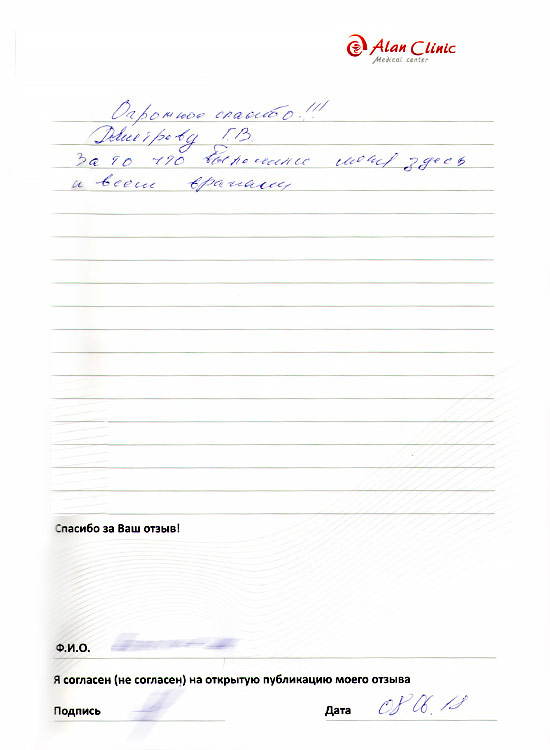 Alan Clinic
Medical center
Огромное спасибо!!!
Дмитреву Г.В.
За то что меня здесь
и всем врачам
Спасибо за Ваш отзыв!
Ф.И.О.
Я согласен (не согласен) на открытую публикацию моего отзыва
Подпись Дата 08 06. 18